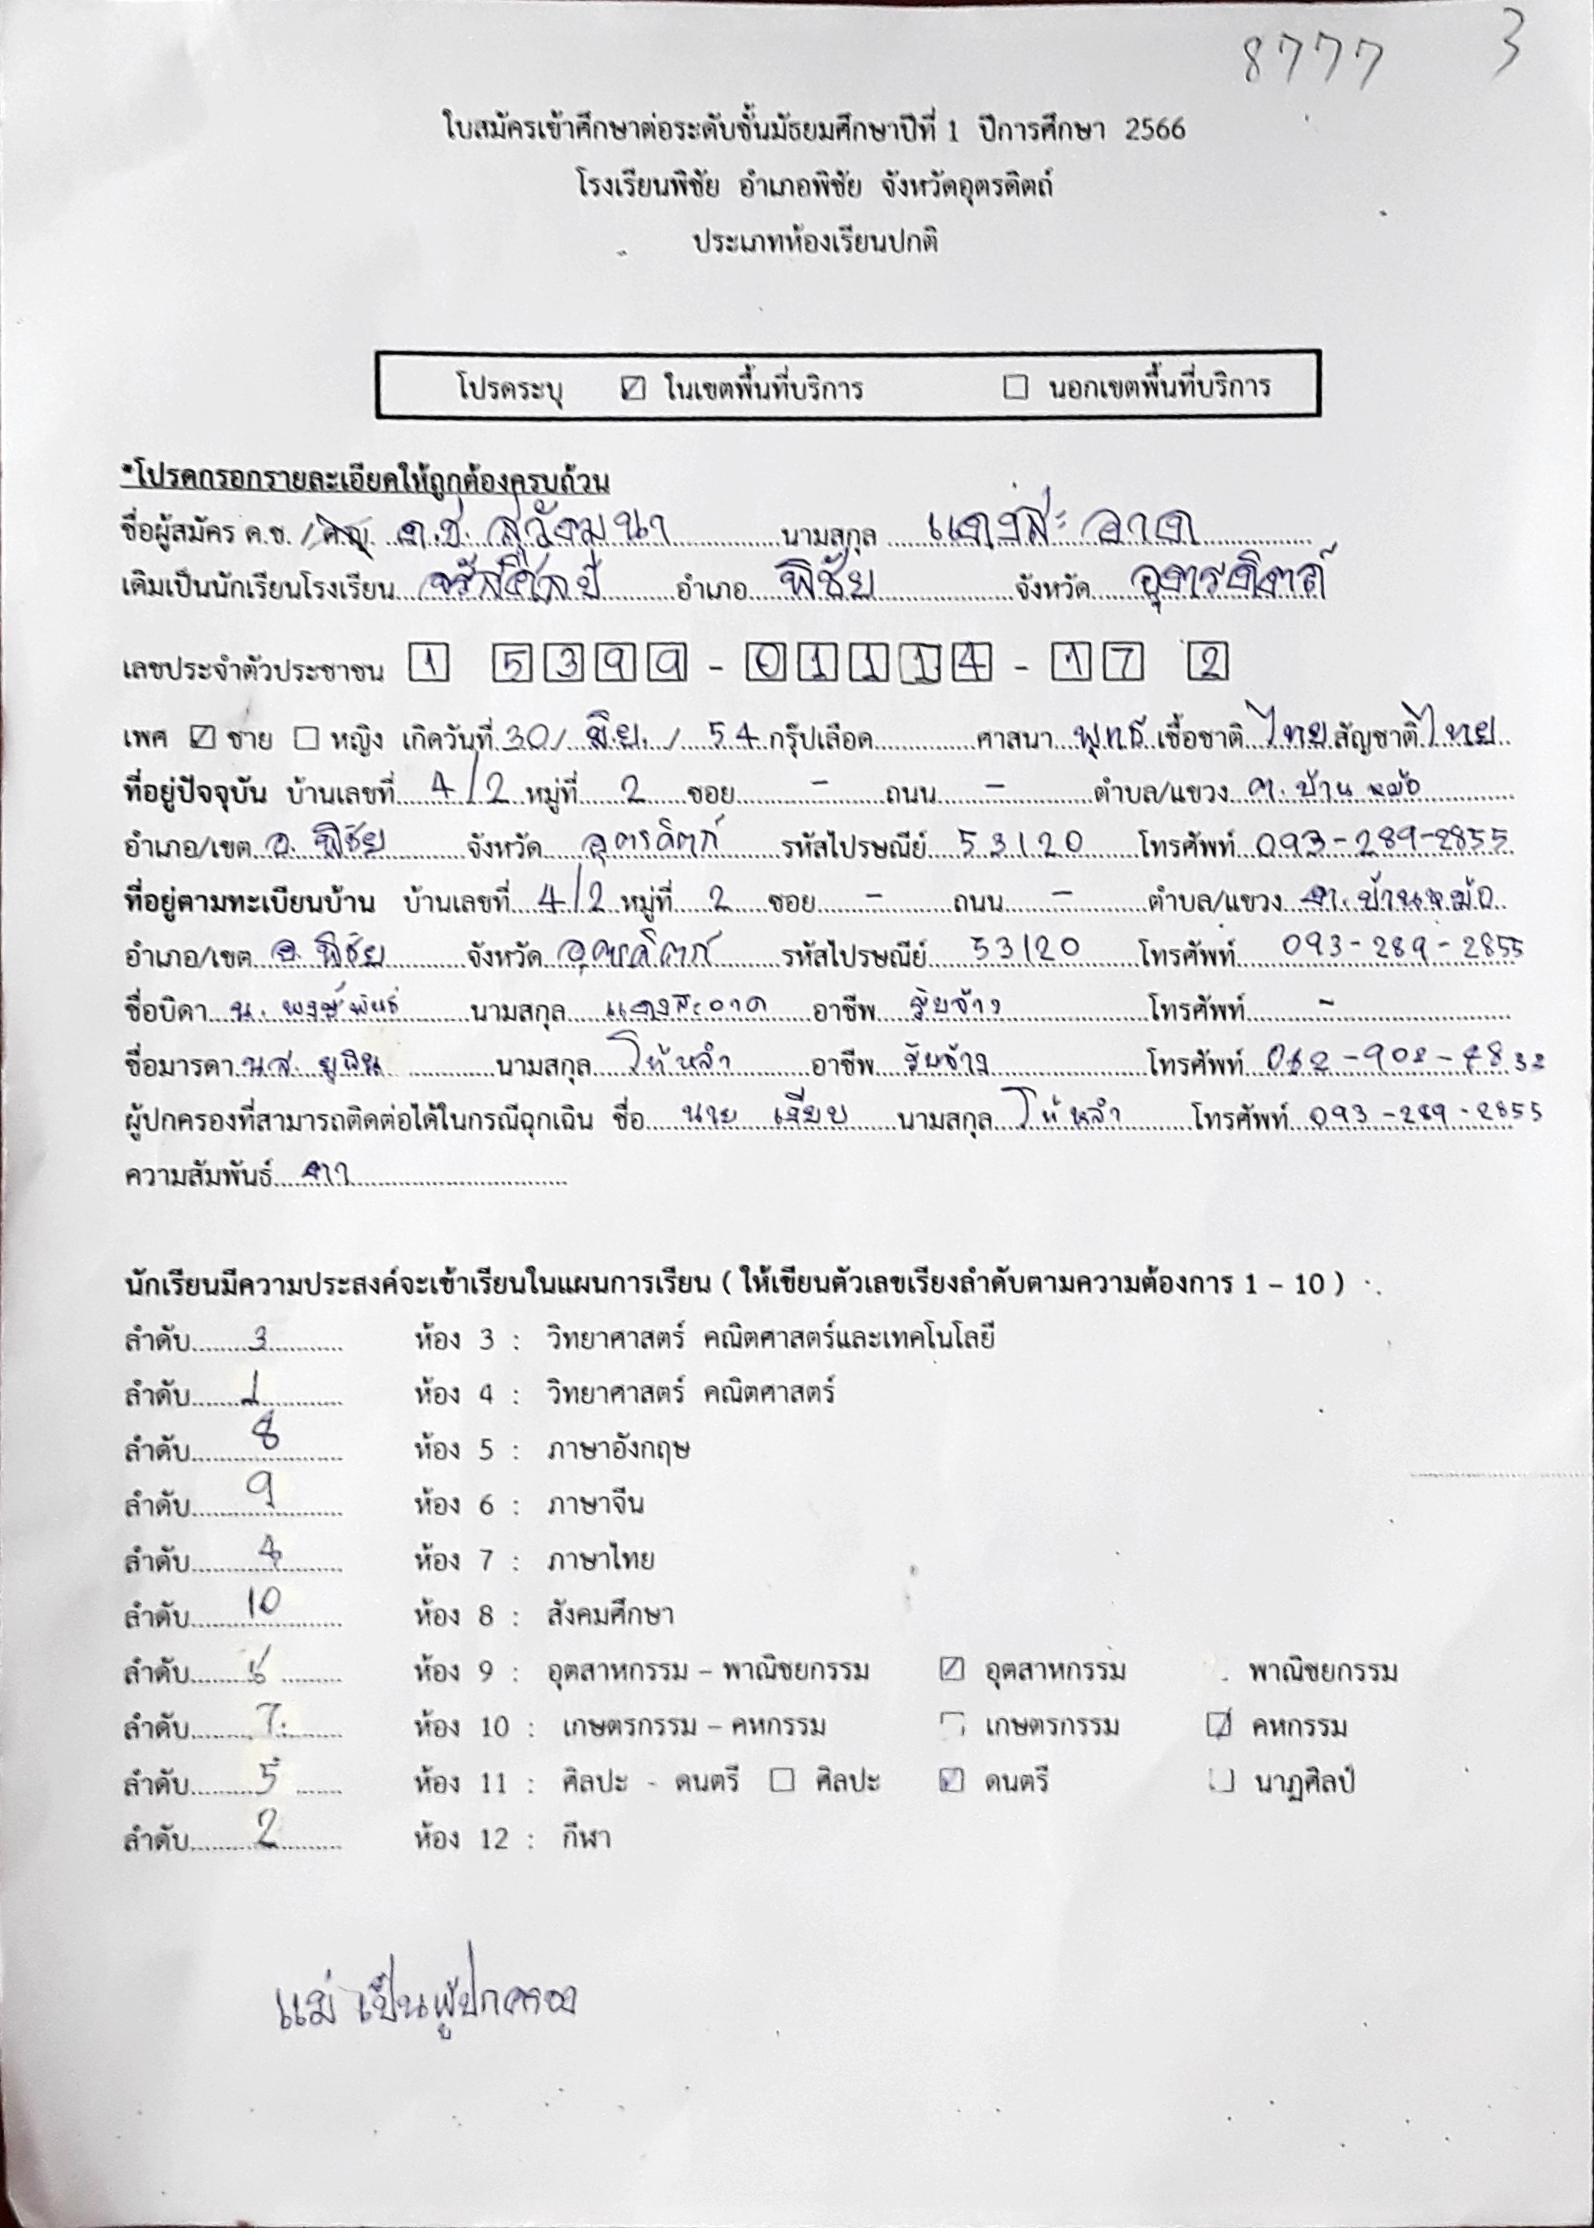 8777 3
ใบสมัครเข้าศึกษาต่อระดับชั้นมัธยมศึกษาปีที่ 1 ปีการศึกษา 2566
โรงเรียนพิชัย อำเภอพิชัย จังหวัดอุตรดิตถ์
ประเภทห้องเรียนปกติ
โปรดระบุ ☑ ในเขตพื้นที่บริการ ☐ นอกเขตพื้นที่บริการ
*โปรดกรอกรายละเอียดให้ถูกต้องครบถ้วน
ชื่อผู้สมัคร ด.ช. / ด.ญ. ด.ช. นามสกุล แดงสะอาด
เดิมเป็นนักเรียนโรงเรียน จรัสศิลป์ อำเภอ พิชัย จังหวัด อุตรดิตถ์
เลขประจำตัวประชาชน 1 5399 - 01114 - 17 2
เพศ ☑ ชาย ☐ หญิง เกิดวันที่ 30 / มิย. / 54 กรุ๊ปเลือด ศาสนา พุทธ เชื้อชาติ ไทย สัญชาติ ไทย
ที่อยู่ปัจจุบัน บ้านเลขที่ 4/2 หมู่ที่ 2 ซอย - ถนน - ตำบล/แขวง ต. บ้านหม้อ
อำเภอ/เขต อ. พิชัย จังหวัด อุตรดิตถ์ รหัสไปรษณีย์ 53120 โทรศัพท์ 093-289-2855
ที่อยู่ตามทะเบียนบ้าน บ้านเลขที่ 4/2 หมู่ที่ 2 ซอย - ถนน - ตำบล/แขวง ต. บ้านหม้อ
อำเภอ/เขต อ. พิชัย จังหวัด อุตรดิตถ์ รหัสไปรษณีย์ 53120 โทรศัพท์ 093-289-2855
ชื่อบิดา น. พงษ์พันธ์ นามสกุล แดงสะอาด อาชีพ รับจ้าง โทรศัพท์ -
ชื่อมารดา นส. ยุพิน นามสกุล โท้หลำ อาชีพ รับจ้าง โทรศัพท์
ผู้ปกครองที่สามารถติดต่อได้ในกรณีฉุกเฉิน ชื่อ นาย เงียบ นามสกุล โท้หลำ โทรศัพท์ 093-289-2855
ความสัมพันธ์ ตา
นักเรียนมีความประสงค์จะเข้าเรียนในแผนการเรียน ( ให้เขียนตัวเลขเรียงลำดับตามความต้องการ 1 – 10 )
ลำดับ 3 ห้อง 3 : วิทยาศาสตร์ คณิตศาสตร์และเทคโนโลยี
ลำดับ 1 ห้อง 4 : วิทยาศาสตร์ คณิตศาสตร์
ลำดับ 8 ห้อง 5 : ภาษาอังกฤษ
ลำดับ 9 ห้อง 6 : ภาษาจีน
ลำดับ 4 ห้อง 7 : ภาษาไทย
ลำดับ 10 ห้อง 8 : สังคมศึกษา
ลำดับ ห้อง 9 : อุตสาหกรรม – พาณิชยกรรม ☑ อุตสาหกรรม พาณิชยกรรม
ลำดับ 7 ห้อง 10 : เกษตรกรรม – คหกรรม ☐ เกษตรกรรม ☑ คหกรรม
ลำดับ 5 ห้อง 11 : ศิลปะ - ดนตรี ☐ ศิลปะ ☑ ดนตรี ☐ นาฏศิลป์
ลำดับ 2 ห้อง 12 : กีฬา
แม่ เป็นผู้ปกครอง